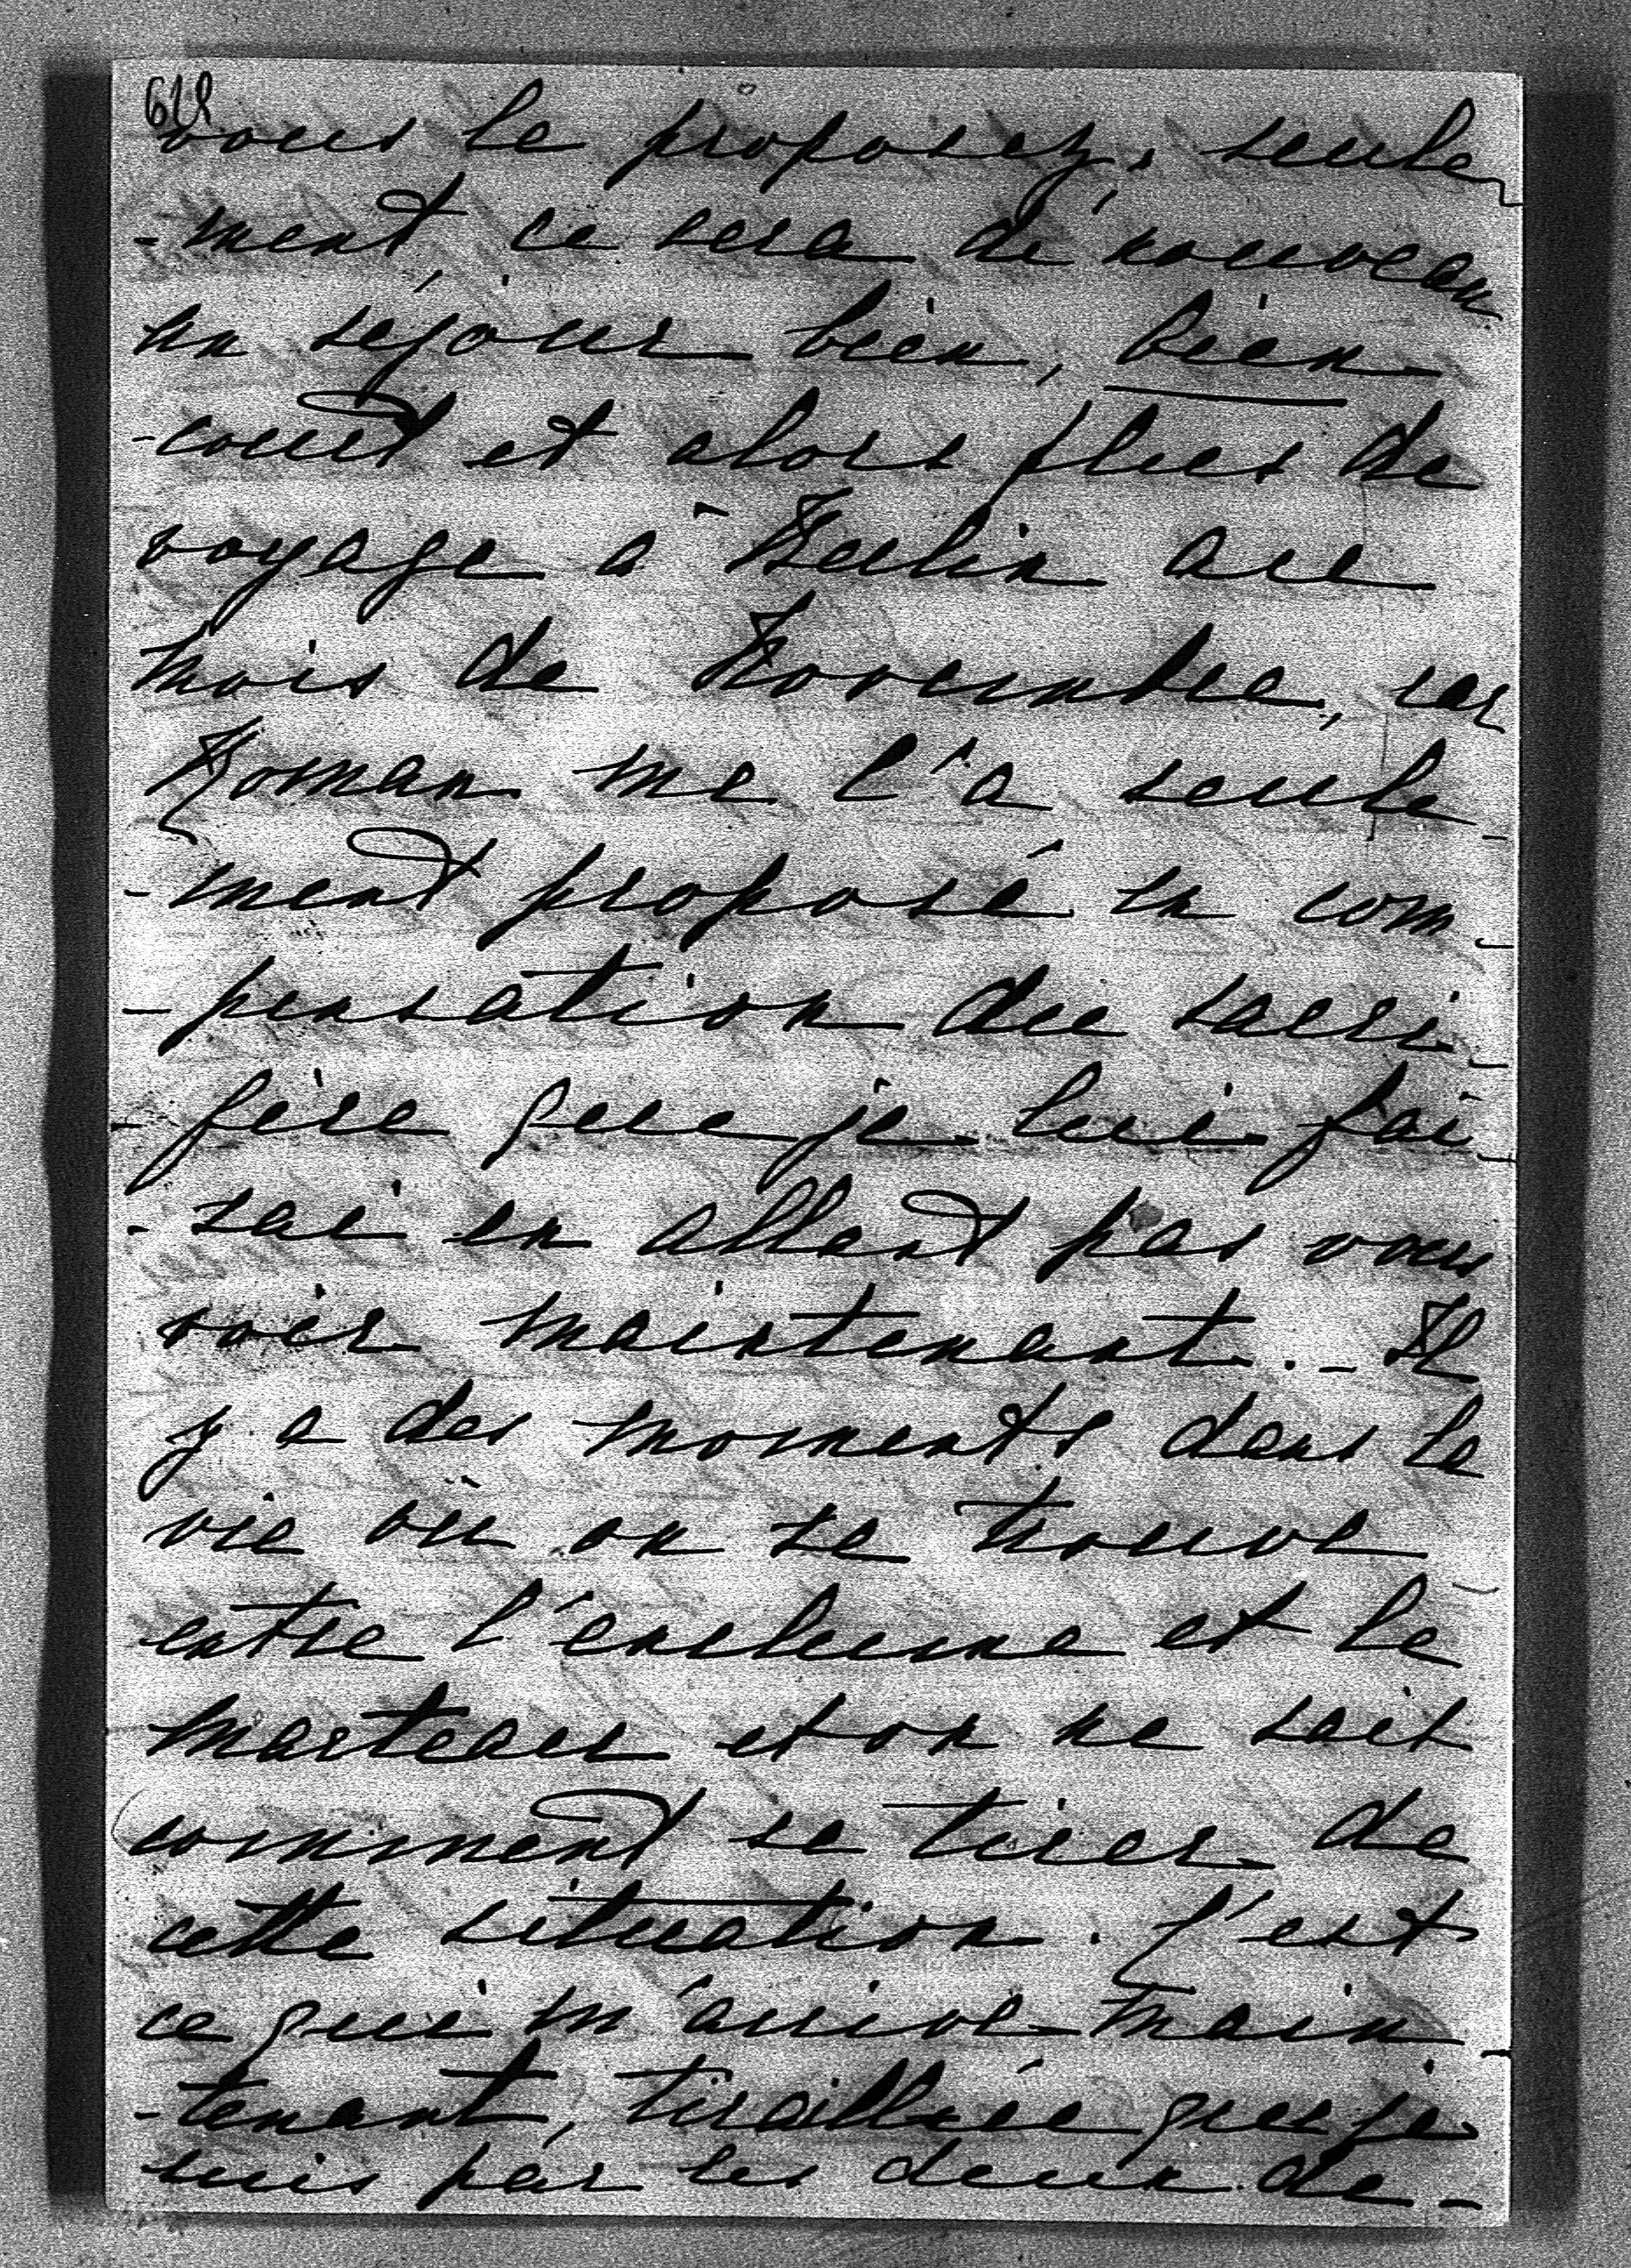 618
vous le proposez, seule
-ment, ce sera de nouveau
un séjour bien, bien
-court et alors plus de
voyage à Berlin au
mois de Novembre, car
Roman me l'a seule-
-ment proposé en com-
-pensation du sacri-
-fice que je lui fai-
-sai en allant pas vous
voir maintenant. - Il
y a des moments dans la
vie où on se trouve
entre l'enclume et le
marteau et on ne sait
comment se tirer de
cette situation. C'est
ce qui m'arrive main-
-tenant, tiraillée que je
suis par les deux de-